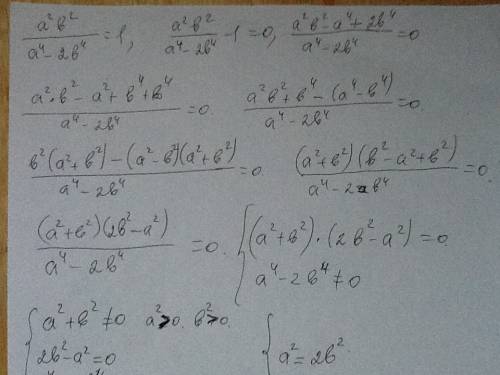 a²b²/(a⁴-2b⁴)=1, a²b²/(a⁴-2b⁴)-1=0, (a²b²-a⁴+2b⁴)/(a⁴-2b⁴)=0
(a²·b²-a²+b⁴+b⁴)/(a⁴-2b⁴)=0. (a²b²+b⁴-(a⁴-b⁴))/(a⁴-2b⁴)=0.
(b²(a²+b²)-(a²-b²)(a²+b²))/(a⁴-2b⁴)=0. ((a²+b²)(b²-a²+b²))/(a⁴-2b⁴)=0.
((a²+b²)(2b²-a²))/(a⁴-2b⁴)=0. {(a²+b²)·(2b²-a²)=0
a⁴-2b⁴≠0
{a²+b²≠0 a²>0. b²>0. {
2b²-a²=0 a²=2b²